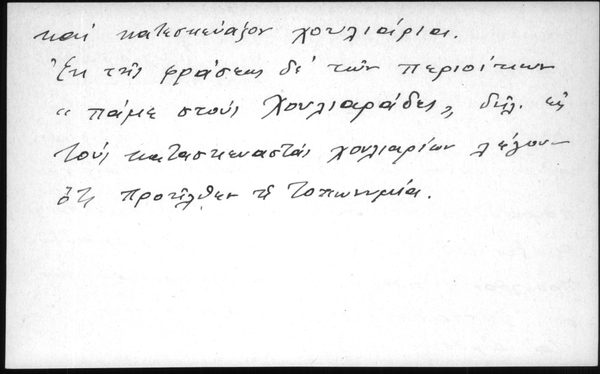 καί κατεσκεύαζον χουλιάρια.
Ἐκ τῆς φράσεως δέ τῶν περιοίκων
"πάμε στούς Χουλιαράδες", δηλ. εἰς
τούς κατασκευαστάς χουλιαρίων λέγουν
ὅτι προῆλθεν ἡ τοπωνυμία.